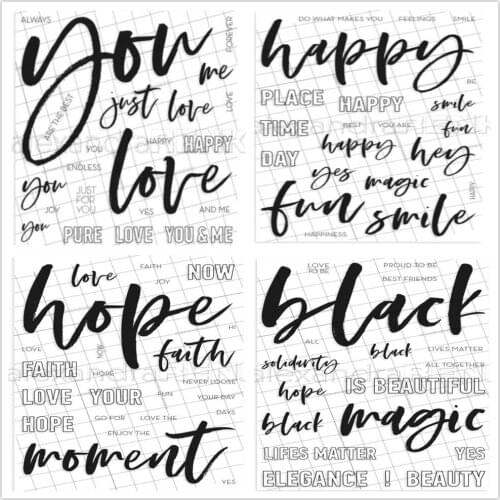 ALWAYS
you
FOREVER
me
ARE THE BEST
just love
LOVE
YOU
HAPPY
HAPPY
ENDLESS
love
you
JUST
FOR
YOU
JOY
YES
AND ME
you
PURE LOVE YOU & ME
DO WHAT MAKES YOU FEELINGS SMILE
happy
BE
PLACE
HAPPY
smile
TIME
BEST YOU ARE
fun
DAY
happy
hey
yes
magic
HAPPY
fun
smile
HAPPINESS
love
FAITH
NOW
JOY
hope
HI
LOVE
NOW
faith
FAITH
HOPE
NEVER LOOSE
LOVE YOUR
FUN
YOUR DAY
HOPE
GO FOR
LOVE THE
DAYS
ENJOY THE
moment
YES
LOVE
TO BE
PROUD TO BE
BEST FRIENDS
black
ALL
solidarity
black
LIVES MATTER
ALL TOGETHER
hope
IS BEAUTIFUL
black
magic
LIFES MATTER YES
ELEGANCE ! BEAUTY